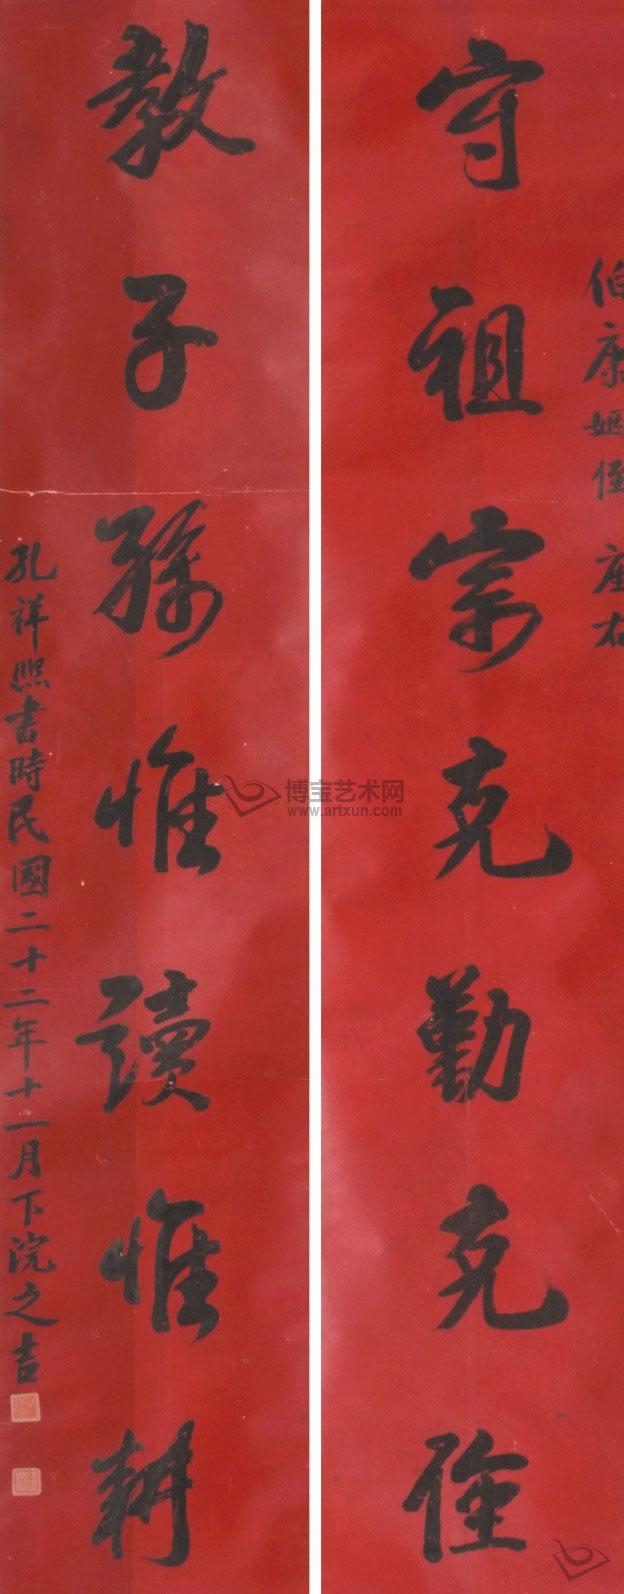 伯康姻侄 座右
守祖宗克勤克儉
教子孫惟讀惟耕
孔祥熙書時民國二十二年十一月下浣之吉
博宝艺术网
www.artxun.com